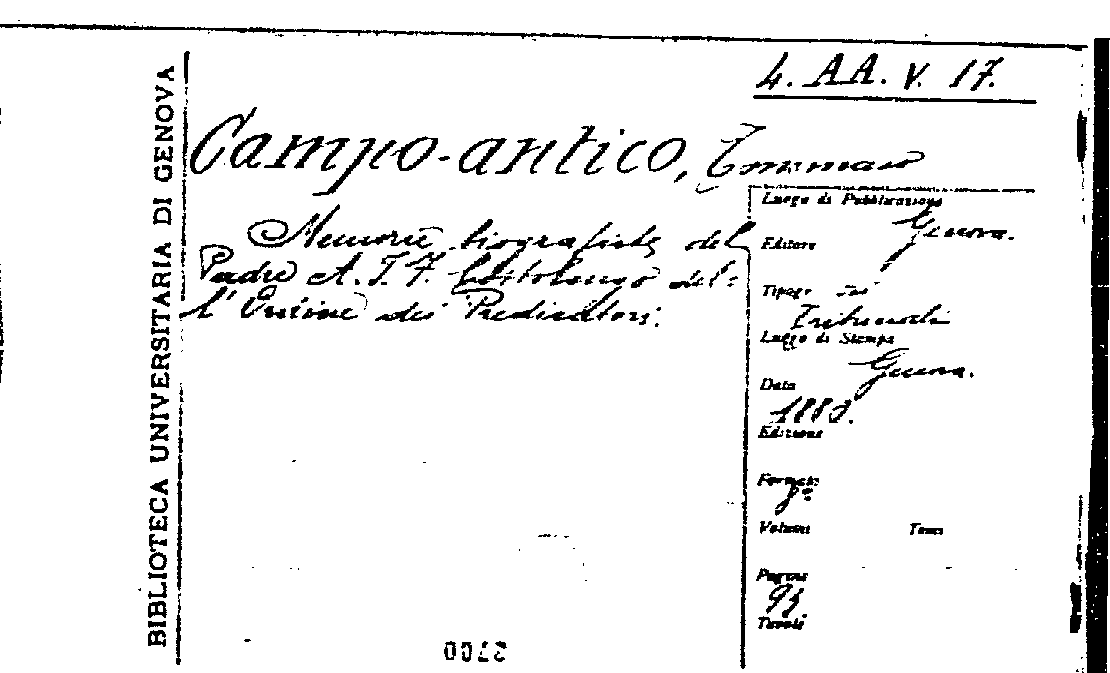 BIBLIOTECA UNIVERSITARIA DI GENOVA
4. AA. V. 17.
Campo-antico, Tommaso
Memorie biografiche del
Padre A. T. F. del-
l'Ordine dei Predicatori.
Luogo di Pubblicazione
Genova.
Editore
Tipogr. dei
Tribunali
Luogo di Stampa
Genova.
Data
Edizione
Formato
8º
Volumi Tomi
Pagine
Tavole
2700